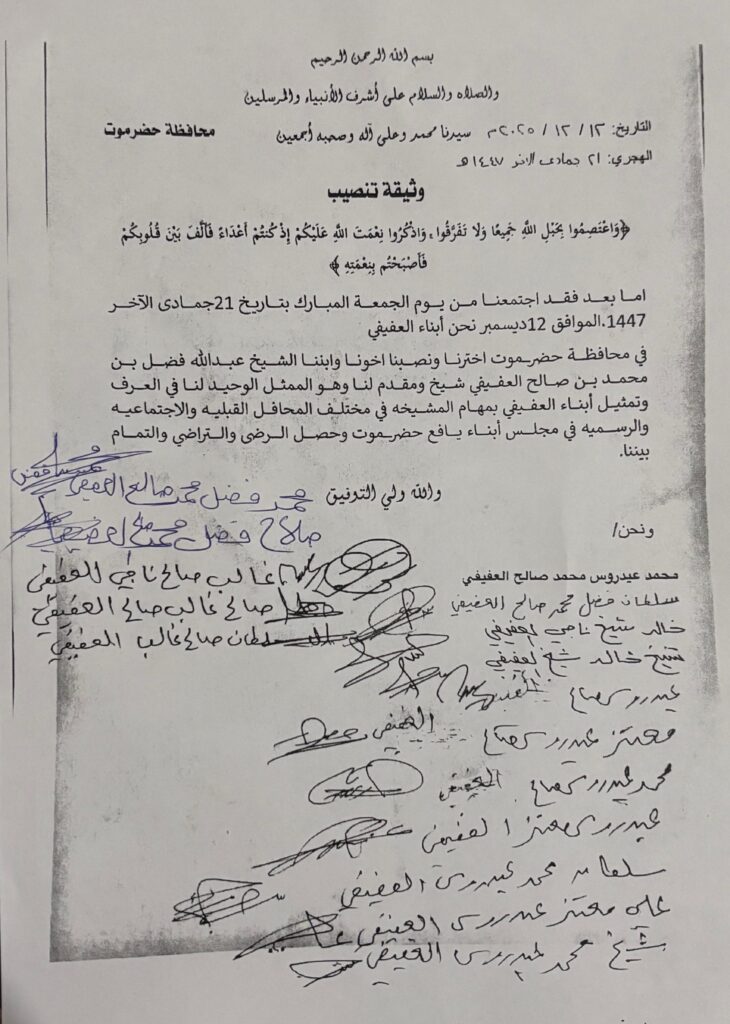 بسم الله الرحمن الرحيم
والصلاه والسلام على أشرف الأنبياء والمرسلين
التاريخ: ١٢ / ١٢ / ٢٠٢٥م سيدنا محمد وعلى آله وصحبه أجمعين محافظة حضرموت
الهجري: ٢١ جمادى الآخر ١٤٤٧هـ
وثيقة تنصيب
﴿وَاعْتَصِمُوا بِحَبْلِ اللَّهِ جَمِيعًا وَلَا تَفَرَّقُوا، وَاذْكُرُوا نِعْمَتَ اللَّهِ عَلَيْكُمْ إِذْ كُنتُمْ أَعْدَاءً فَأَلَّفَ بَيْنَ قُلُوبِكُمْ
فَأَصْبَحْتُم بِنِعْمَتِهِ﴾
اما بعد فقد اجتمعنا من يوم الجمعة المبارك بتاريخ 21جمادى الآخر
1447.الموافق 12ديسمبر نحن أبناء العفيفي
في محافظة حضرموت اخترنا ونصبنا اخونا وابننا الشيخ عبدالله فضل بن
محمد بن صالح العفيفي شيخ ومقدم لنا وهو الممثل الوحيد لنا في العرف
وتمثيل أبناء العفيفي بمهام المشيخه في مختلف المحافل القبليه والاجتماعيه
والرسميه في مجلس أبناء يافع حضرموت وحصل الرضى والتراضي والتمام
بيننا.
والله ولي التوفيق
محمد فضل محمد صالح العفيفي
صلاح فضل محمد صالح العفيفي
ونحن/
غالب صالح ناجي العفيفي
صالح غالب صالح العفيفي
سلطان صالح غالب العفيفي
محمد عيدروس محمد صالح العفيفي
سلطان فضل محمد صالح العفيفي
خالد شيخ ناجي العفيفي
شيخ خالد شيخ العفيفي
عيدروس صالح العفيفي
معتز عيدروس صالح العفيفي
محمد عيدروس صالح العفيفي
عيدروس معتز العفيفي
سلمان محمد عيدروس العفيفي
علي معتز عيدروس العفيفي
شيخ محمد عيدروس العفيفي